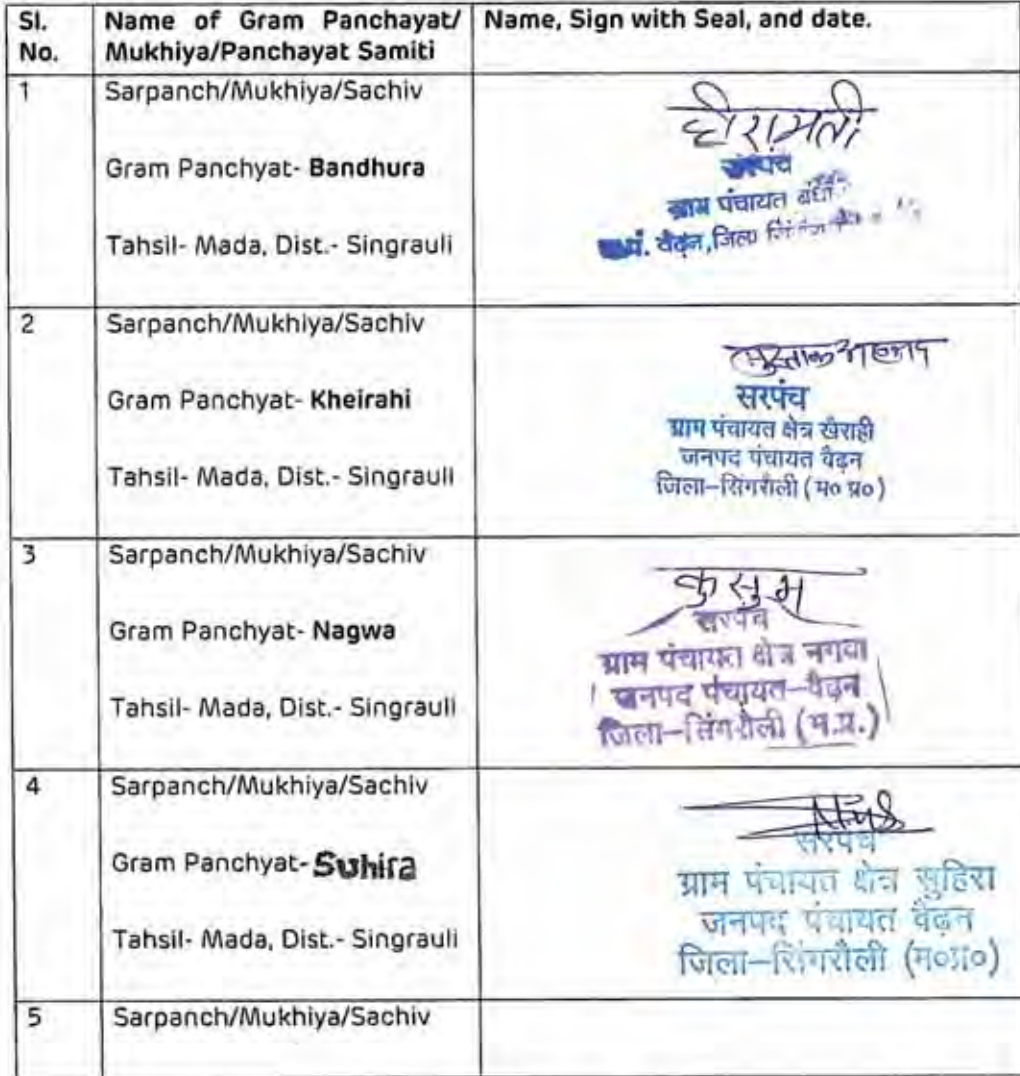 Sl. No.
Name of Gram Panchayat/ Mukhiya/Panchayat Samiti
Name, Sign with Seal, and date.
1
Sarpanch/Mukhiya/Sachiv
Gram Panchyat- Bandhura
Tahsil- Mada, Dist.- Singrauli
हीरामती
सरपंच
ग्राम पंचायत
वैढ़न, जिला
2
Sarpanch/Mukhiya/Sachiv
Gram Panchyat- Kheirahi
Tahsil- Mada, Dist.- Singrauli
मुस्ताक अहमद
सरपंच
ग्राम पंचायत क्षेत्र खैराही
जनपद पंचायत वैढ़न
जिला-सिंगरौली (म० प्र०)
3
Sarpanch/Mukhiya/Sachiv
Gram Panchyat- Nagwa
Tahsil- Mada, Dist.- Singrauli
कुसुम
सरपंच
ग्राम पंचायत क्षेत्र नगवा
जनपद पंचायत-वैढ़न
जिला-सिंगरौली (म.प्र.)
4
Sarpanch/Mukhiya/Sachiv
Gram Panchyat- Suhira
Tahsil- Mada, Dist.- Singrauli
सरपंच
ग्राम पंचायत क्षेत्र सुहिरा
जनपद पंचायत वैढ़न
जिला-सिंगरौली (म०प्र०)
5
Sarpanch/Mukhiya/Sachiv